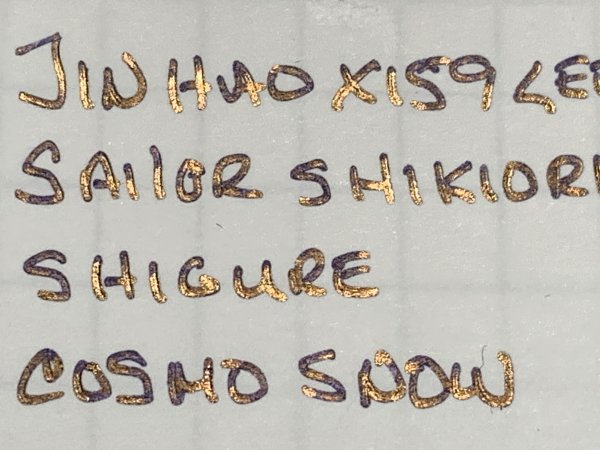 JINHAO X159 LE
SAILOR SHIKIORI
SHIGURE
COSMO SNOW